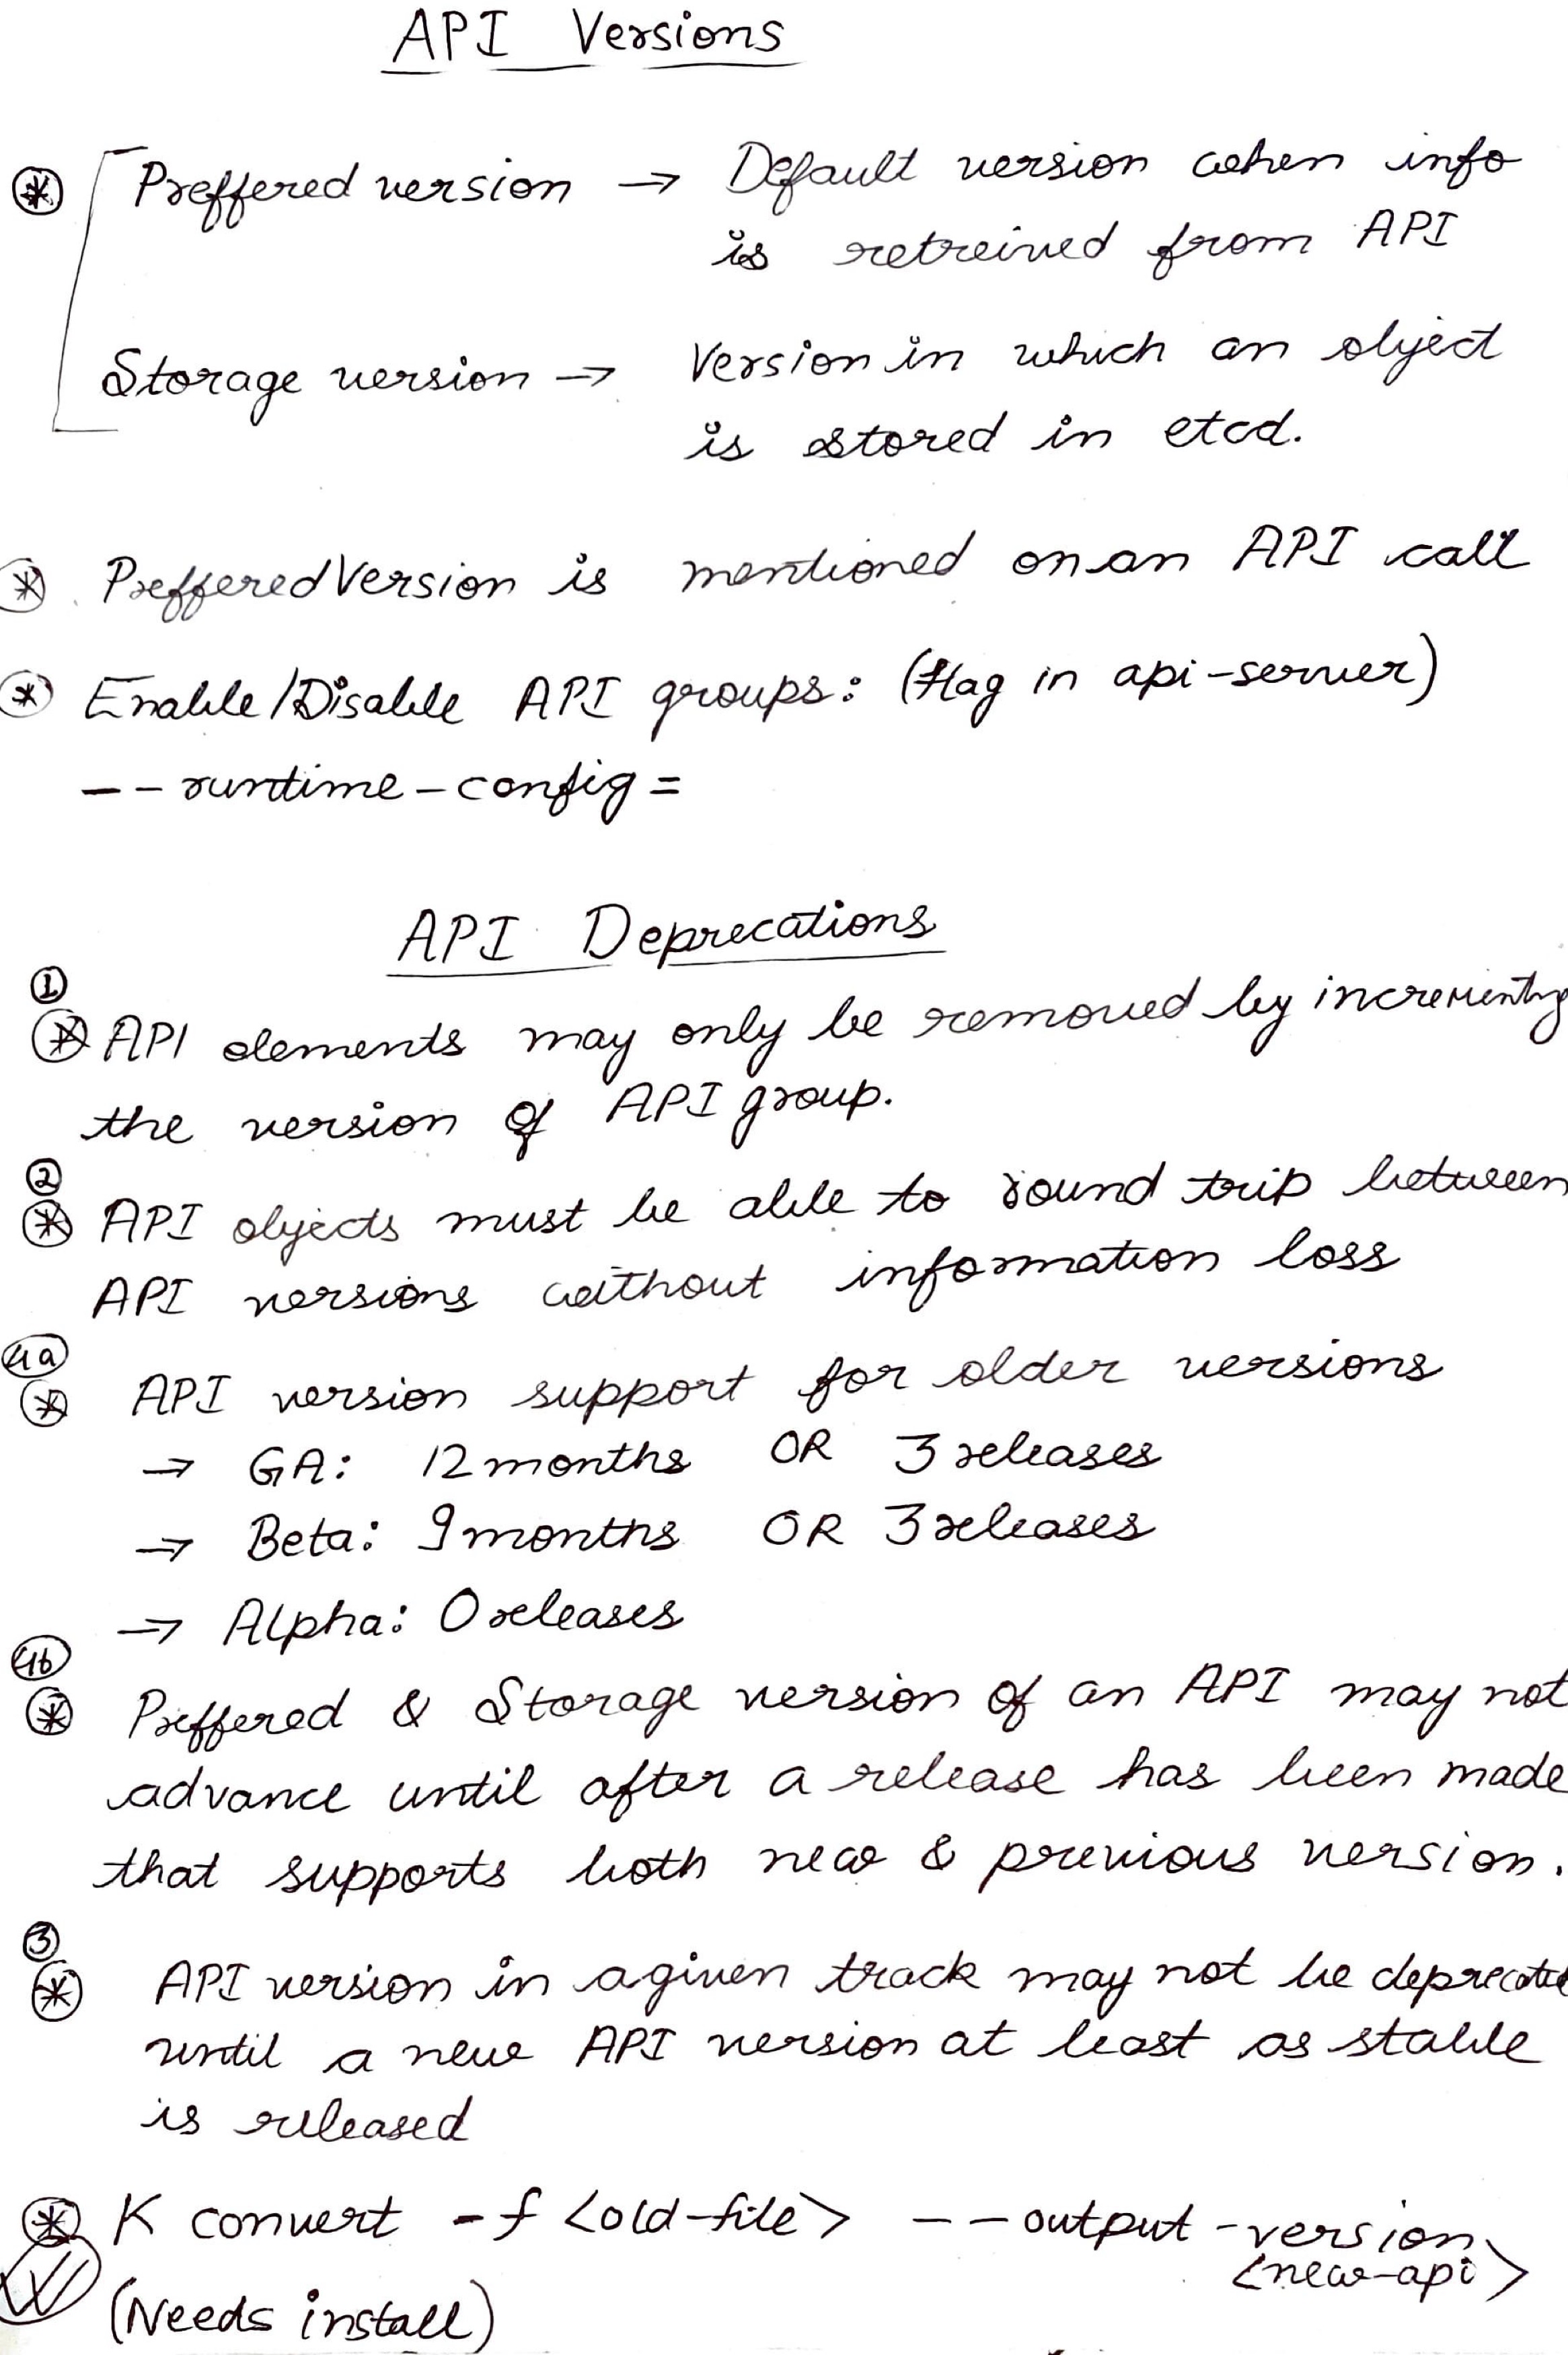 API Versions
⊛ Preffered version → Default version when info
is retreived from API
Storage version → Version in which an object
is stored in etcd.
⊛ PrefferedVersion is mentioned on an API call
⊛ Enable/Disable API groups: (flag in api-server)
--runtime-config=
API Deprecations
①
⊛ API elements may only be removed by incrementing
the version of API group.
②
⊛ API objects must be able to round trip between
API versions without information loss
4a
⊛ API version support for older versions
→ GA: 12 months OR 3 releases
→ Beta: 9 months OR 3 releases
→ Alpha: 0 releases
4b
⊛ Preffered & Storage version of an API may not
advance until after a release has been made
that supports both new & previous version.
③
⊛ API version in a given track may not be deprecated
until a new API version at least as stable
is released
⊛ K convert -f <old-file> --output-version
<new-api>
(Needs install)